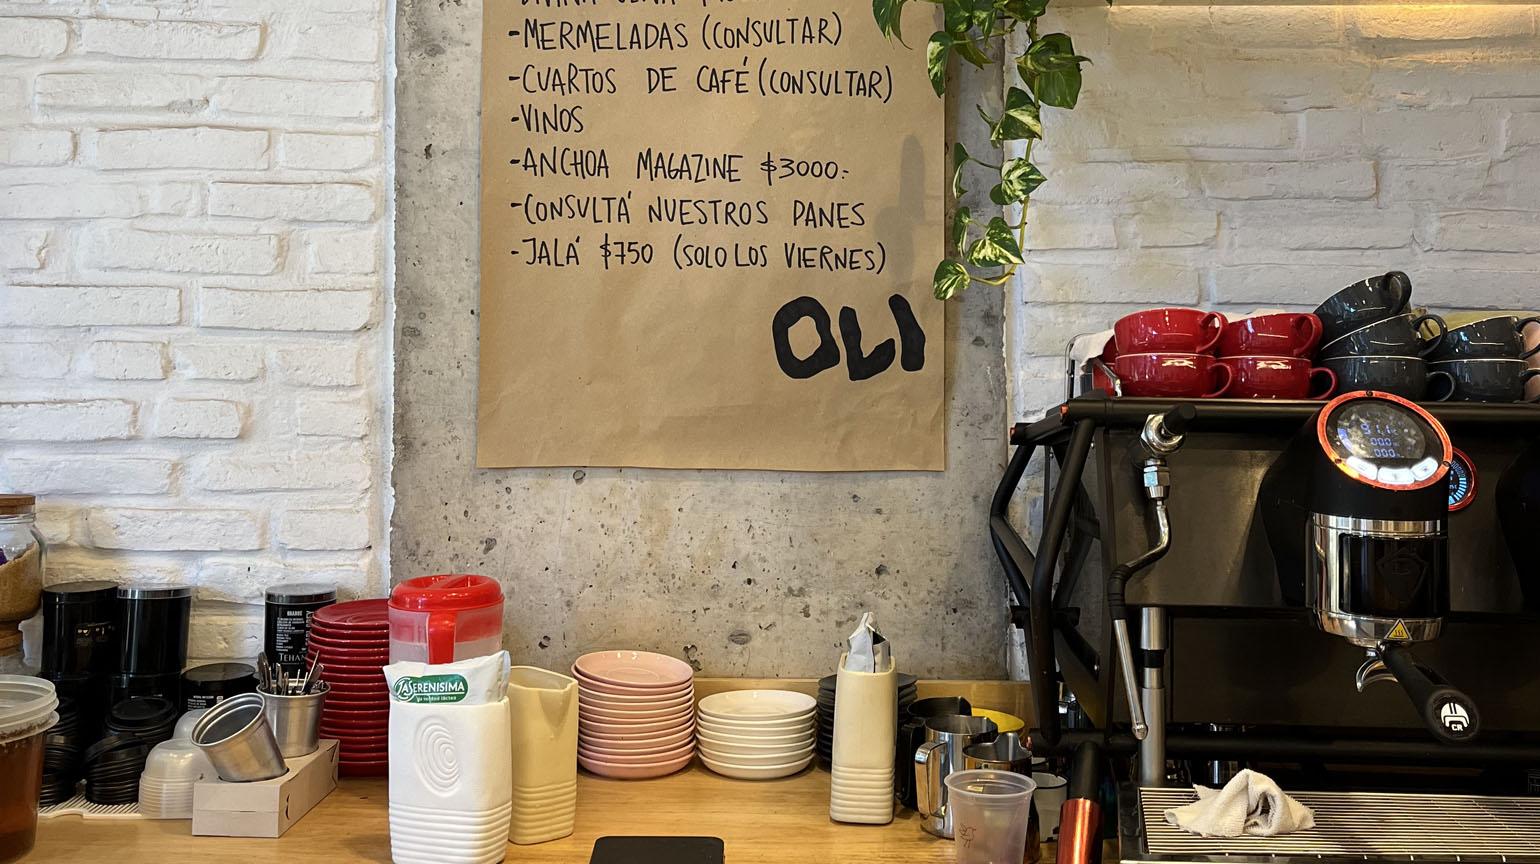 -MERMELADAS (CONSULTAR)
-CUARTOS DE CAFÉ (CONSULTAR)
-VINOS
-ANCHOA MAGAZINE $3000.-
-CONSULTÁ NUESTROS PANES
-JALÁ $750 (SOLO LOS VIERNES)
OLI
LA SERENISIMA
91.1
00.0
000
CR